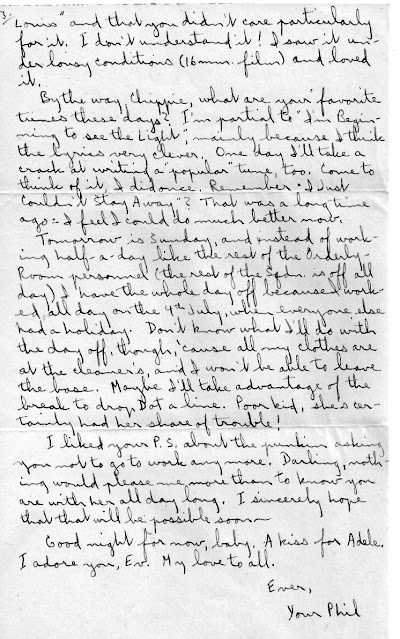 3/
Louis" and that you didn't care particularly
for it. I don't understand it! I saw it un-
der lousy conditions (16 mm. film) and loved
it.
By the way, Chippie, what are your favorite
tunes these days? I'm partial to "I'm Begin-
ning to see the Light", mainly because I think
the lyrics very clever. One day I'll take a
crack at writing a "popular" tune, too. Come to
think of it, I did once. Remember "I Just
Couldn't Stay Away"? That was a long time
ago - I feel I could do much better now.
Tomorrow is Sunday, and instead of work-
ing half-a-day like the rest of the Orderly-
Room personnel (the rest of the Sqdn. is off all
day), I have the whole day off because I work-
ed all day on the 4th July, when everyone else
had a holiday. Don't know what I'll do with
the day off, though, 'cause all my clothes are
at the cleaner's, and I won't be able to leave
the base. Maybe I'll take advantage of the
break to drop Dot a line. Poor kid, she's cer-
tainly had her share of trouble!
I liked your P.S. about the punkin asking
you not to go to work any more. Darling, noth-
ing would please me more than to know you
are with her all day long. I sincerely hope
that that will be possible soon—
Good night for now, baby. A kiss for Adele.
I adore you, Ev. My love to all.
Ever,
Your Phil